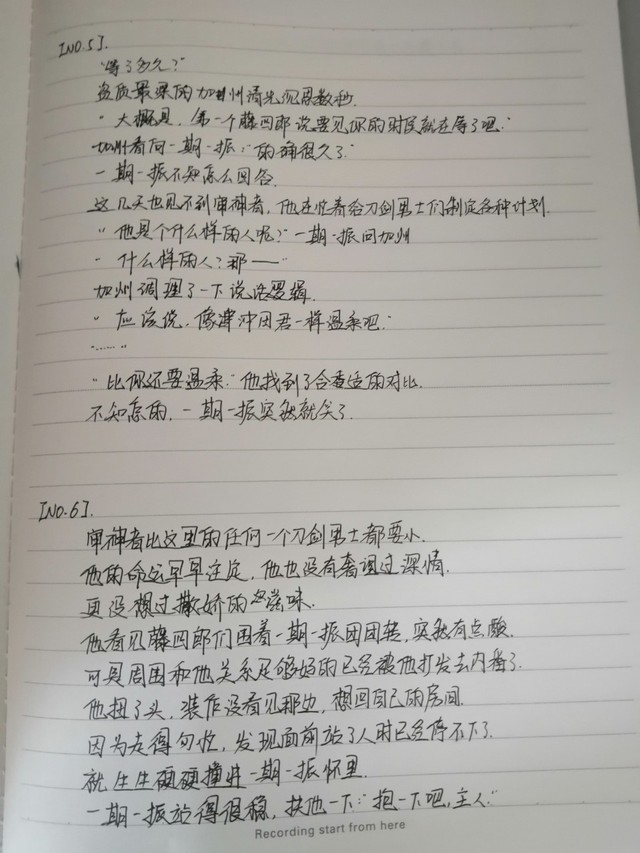 [NO.5].
"等了多久?"
资质最深的加州清光沉思数秒.
"大概是,第一个藤四郎说要见你的时候就在等了吧."
加州看向一期一振:"的确很久了."
一期一振不知怎么回答.
这几天也见不到审神者,他在忙着给刀剑男士们制定各种计划.
"他是个什么样的人呢?"一期一振问加州
"什么样的人?那——"
加州调理了一下说话逻辑.
"应该说,像津冲田君一样温柔吧."
"……"
"比你还要温柔."他找到了合适的对比.
不知怎的,一期一振突然就笑了.
[NO.6].
审神者比这里的任何一个刀剑男士都要小.
他的命运早早注定,他也没有奢望过深情.
更没想过撒娇的滋味.
他看见藤四郎们围着一期一振团团转,突然有点酸.
可是周围和他关系足够好的已经被他打发去内番了.
他扭了头,装作没看见那边,想回自己的房间.
因为走得匆忙,发现面前站了人时已经停不下了.
就生生硬硬撞进一期一振怀里.
一期一振站得很稳,扶他一下:"抱一下吧,主人."
Recording start from here